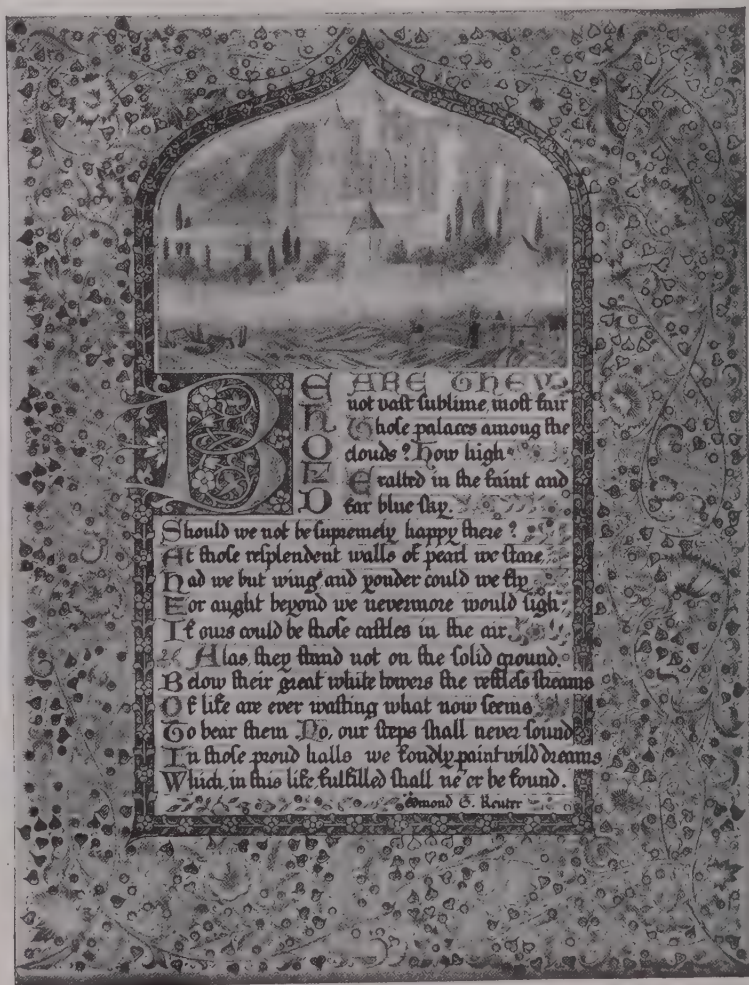 BEHOLD ARE THEY
not vast sublime, most fair
Those palaces among the
clouds? How high
Exalted in the faint and
far blue sky.
Should we not be supremely happy there?
At those resplendent walls of pearl we stare,
Had we but wings and yonder could we fly
For aught beyond we nevermore would sigh
If ours could be those castles in the air.
Alas, they stand not on the solid ground.
Below their great white towers the restless streams
Of life are ever wasting what now seems
To bear them No, our steps shall never sound
In those proud halls we fondly paint wild dreams
Which, in this life, fulfilled shall ne'er be found.
Edmond G. Reuter